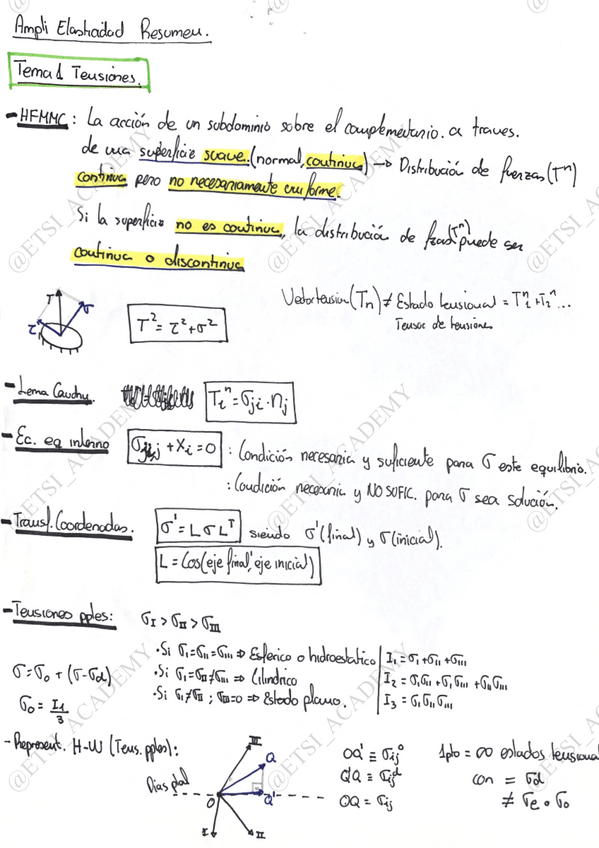 Ampli Elasticidad Resumen.
Tema 1 Tensiones.
- HFMMC: La acción de un subdominio sobre el complementario. a traves.
de una superficie suave. (normal, continua) → Distribución de fuerzas (Tⁿ)
continua pero no necesariamente uniforme.
Si la superficie no es continua, la distribución de (Tⁿ) puede ser
continua o discontinua
T σ τ
T² = τ² + σ²
Vector tension (Tn) ≠ Estado tensional = Tᵢⁿ + T₂ⁿ...
Tensor de tensiones
- Lema Cauchy. Tᵢⁿ = σⱼᵢ · nⱼ
- Ec. eq interno + Xᵢ = 0 : Condición necesaria y suficiente para σ este equilibrio.
: Condición necesaria y NO SUFIC. para σ sea solución.
- Transf. Coordenadas. σ' = L σ Lᵀ siendo σ' (final) y σ (inicial).
L = Cos(eje final, eje inicial)
- Tensiones pples: σI > σII > σIII
· Si σI = σII = σIII ⇒ Esferico o hidrostatico
· Si σI = σII ≠ σIII ⇒ Cilindrico
· Si σI ≠ σII ; σIII = 0 ⇒ Estado plano.
I₁ = σI + σII + σIII
I₂ = σIσII + σIσIII + σIIσIII
I₃ = σI σII σIII
σ = σ₀ + (σ - σd)
σ₀ = I₁/3
- Represent. H-W (Tens. pples):
Dias ptal
III Q O Q' I II
OQ' ≡ σij⁰
Q'Q ≡ σijᵈ
OQ = σij
1pto = ∞ estados tensional
con = σd
≠ σe o σ₀
@ETSI_ACADEMY